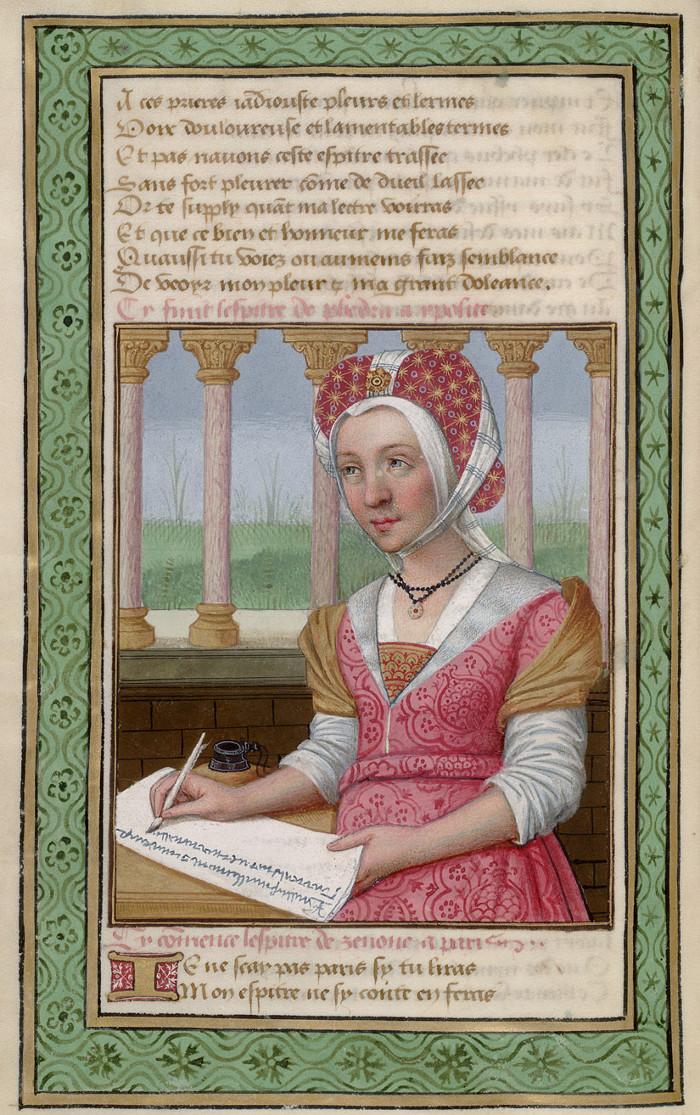 A ces prieres iadiouste pleurs et lermes
Voix douloureuse et lamentables termes
Et pas nauons ceste espitre trassee
Sans fort pleurer cõme de dueil lassee
Or te supply quãt ma lectre voirras
Et que ce bien et honneur me feras
Quaussi tu voiez ou aumeins faiz semblance
De veoyr mon pleur & ma grant doleance.
Cy finit lespitre de phedra a ypolite
Cy cõmence lespitre de zenone a paris
IE ne scay pas paris sy tu liras
Mon espitre ne sy conte en feras